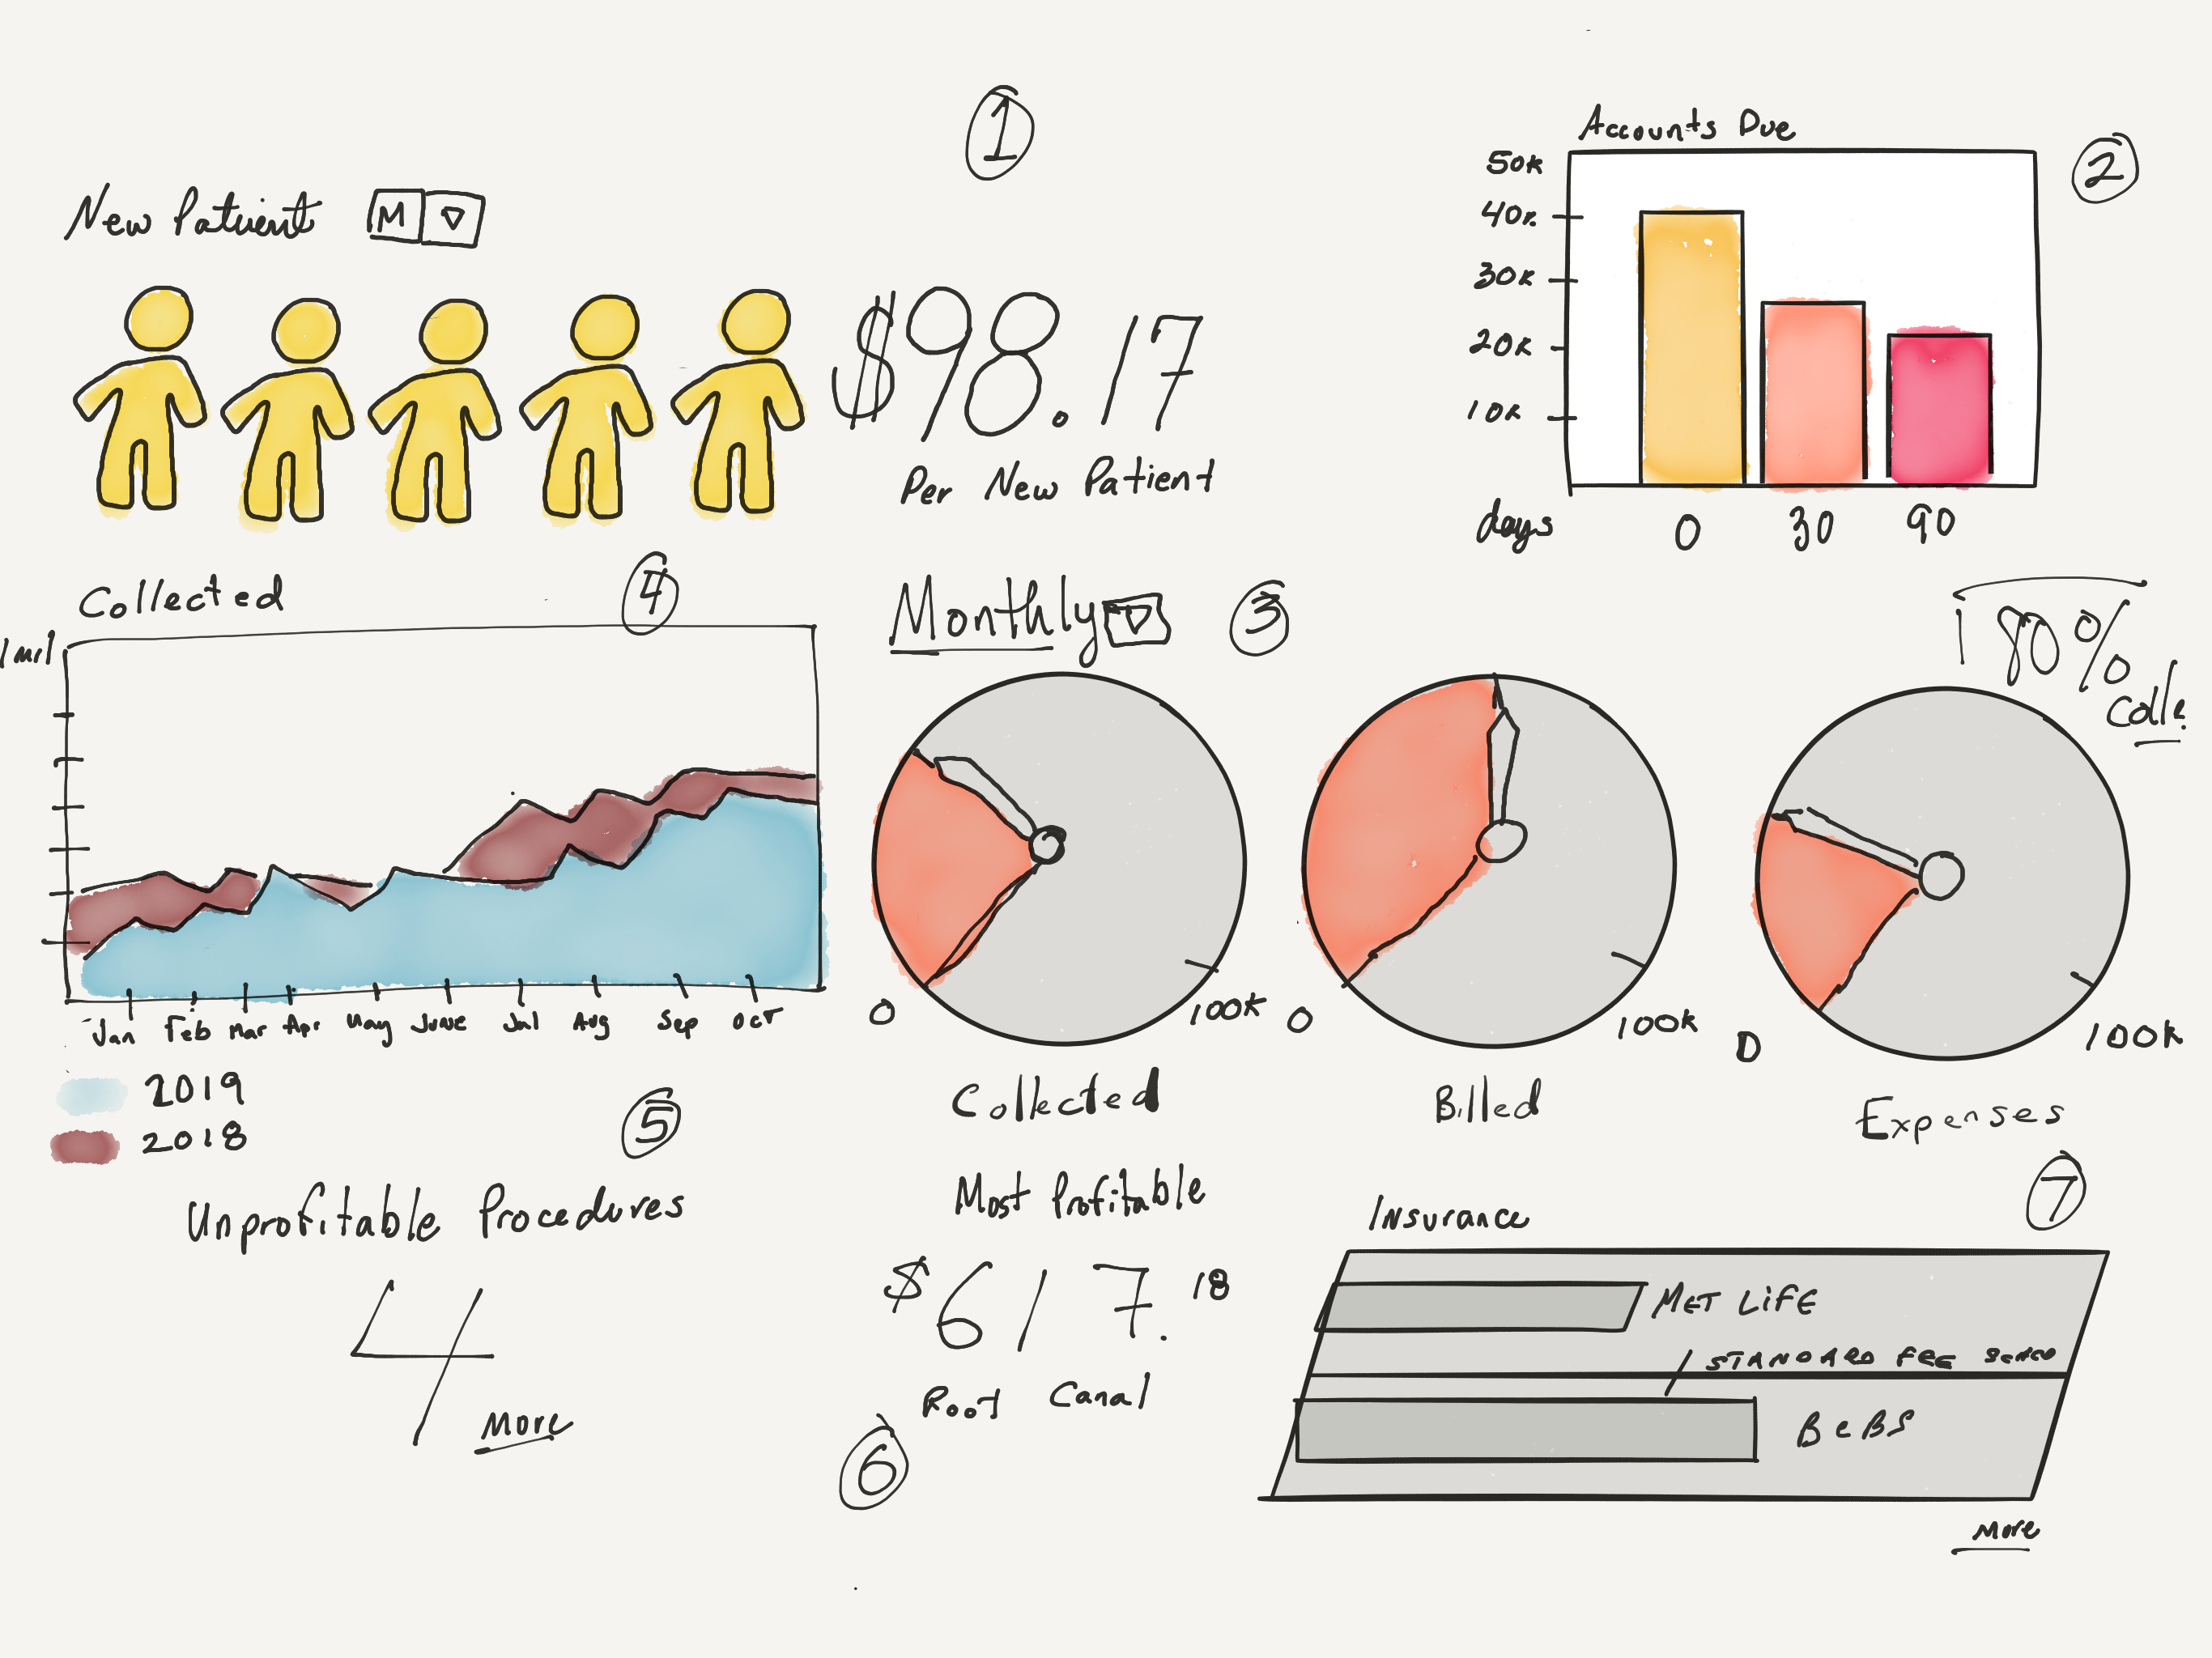 1
New Patient M
$98.17
Per New Patient
Accounts Due
2
50k
40k
30k
20k
10k
days 0 30 90
Collected
4
1 mil
Jan Feb Mar Apr May June Jul Aug Sep Oct
2019
2018
Monthly
3
80%
Colle
0 100k
Collected
0 100k
Billed
0 100k
Expenses
5
Unprofitable Procedures
4
More
Most Profitable
$617.18
Root Canal
6
7
Insurance
MET LIFE
STANDARD FEE
BCBS
More